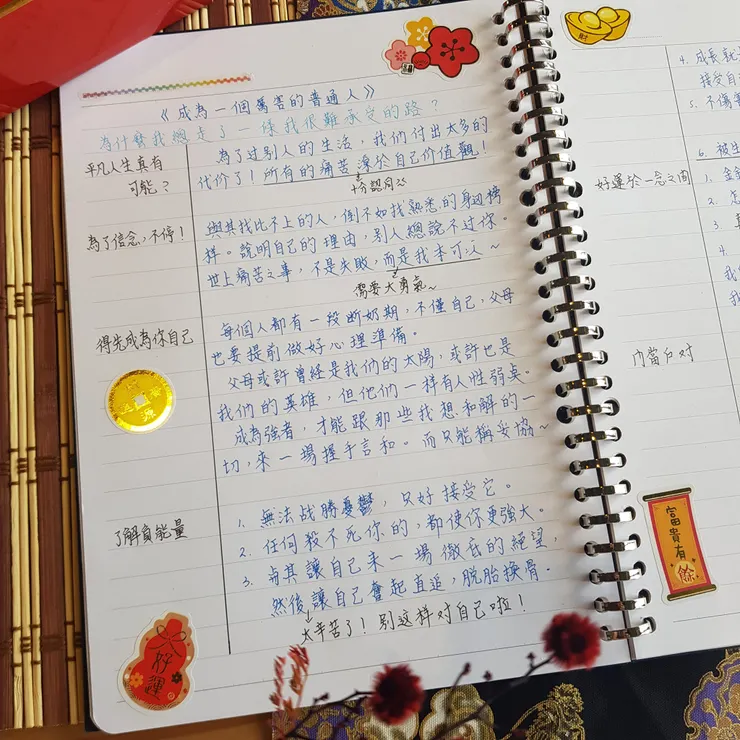 《成為一個厲害的普通人》
為什麼我總走了一條我很難承受的路？
平凡人生真有
可能？
為了过别人的生活，我們付出太多的
代价了！所有的痛苦源於自己价值觀！
十分認同
為了信念，不停！
與其找比不上的人，倒不如找熟悉的身边榜
样。說明自己的理由，别人總說不过你。
世上痛苦之事，不是失敗，而是我本可以~
需要大勇氣~
得先成為你自己
每個人都有一段断奶期，不僅自己，父母
也要提前做好心理準備。
父母或許曾經是我們的太陽，或許也是
我們的英雄，但他們一样有人性弱点。
成為強者，才能跟那些我想和解的一
切，來一場握手言和。而只能稱妥協~
了解負能量
1. 無法战勝憂鬱，只好接受它。
2. 任何殺不死你的，都使你更強大。
3. 与其讓自己来一場徹底的絕望，
然後讓自己奮起直追，脫胎換骨。
太辛苦了！别這样对自己啦！
好運
財
4. 成長就
接受自
5. 不傷害
6. 被生
好運於一念之間
1. 金
2. 怎
3.
4.
我
我
門當户对
富貴有
餘